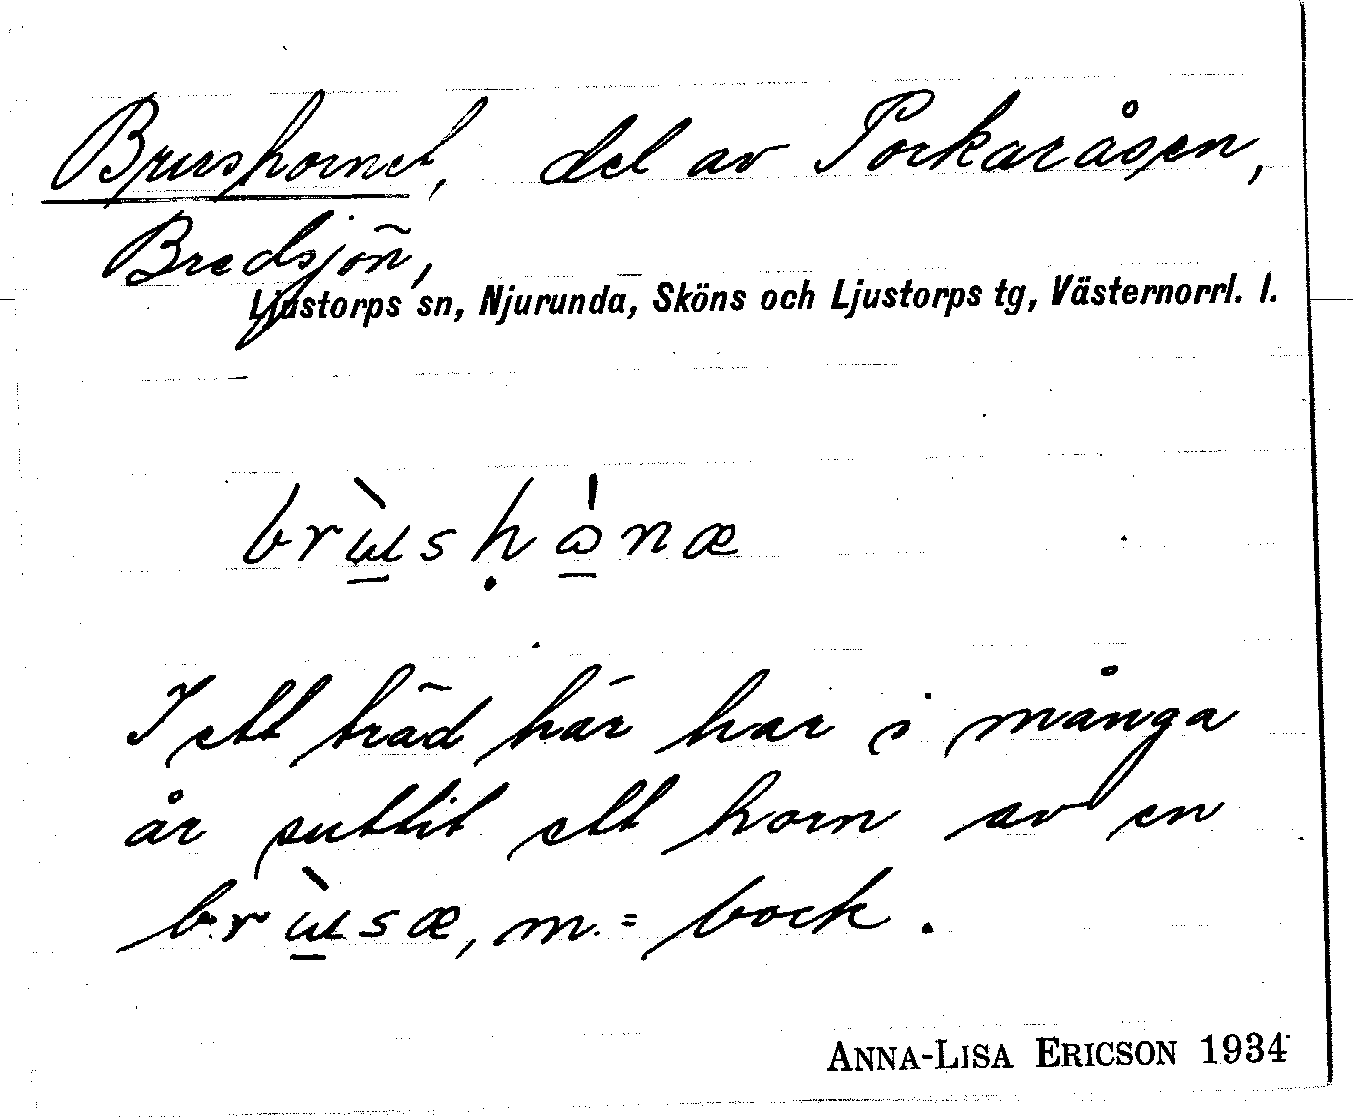 Brushornet, del av Porkaråsen,
Bredsjön,
Ljustorps sn, Njurunda, Sköns och Ljustorps tg, Västernorrl. l.
brɯ̱̀sḥɷ̱̀næ
I ett träd här har i många
år suttit ett horn av en
brɯ̱̀sæ, m. = bock.
ANNA-LISA ERICSON 1934